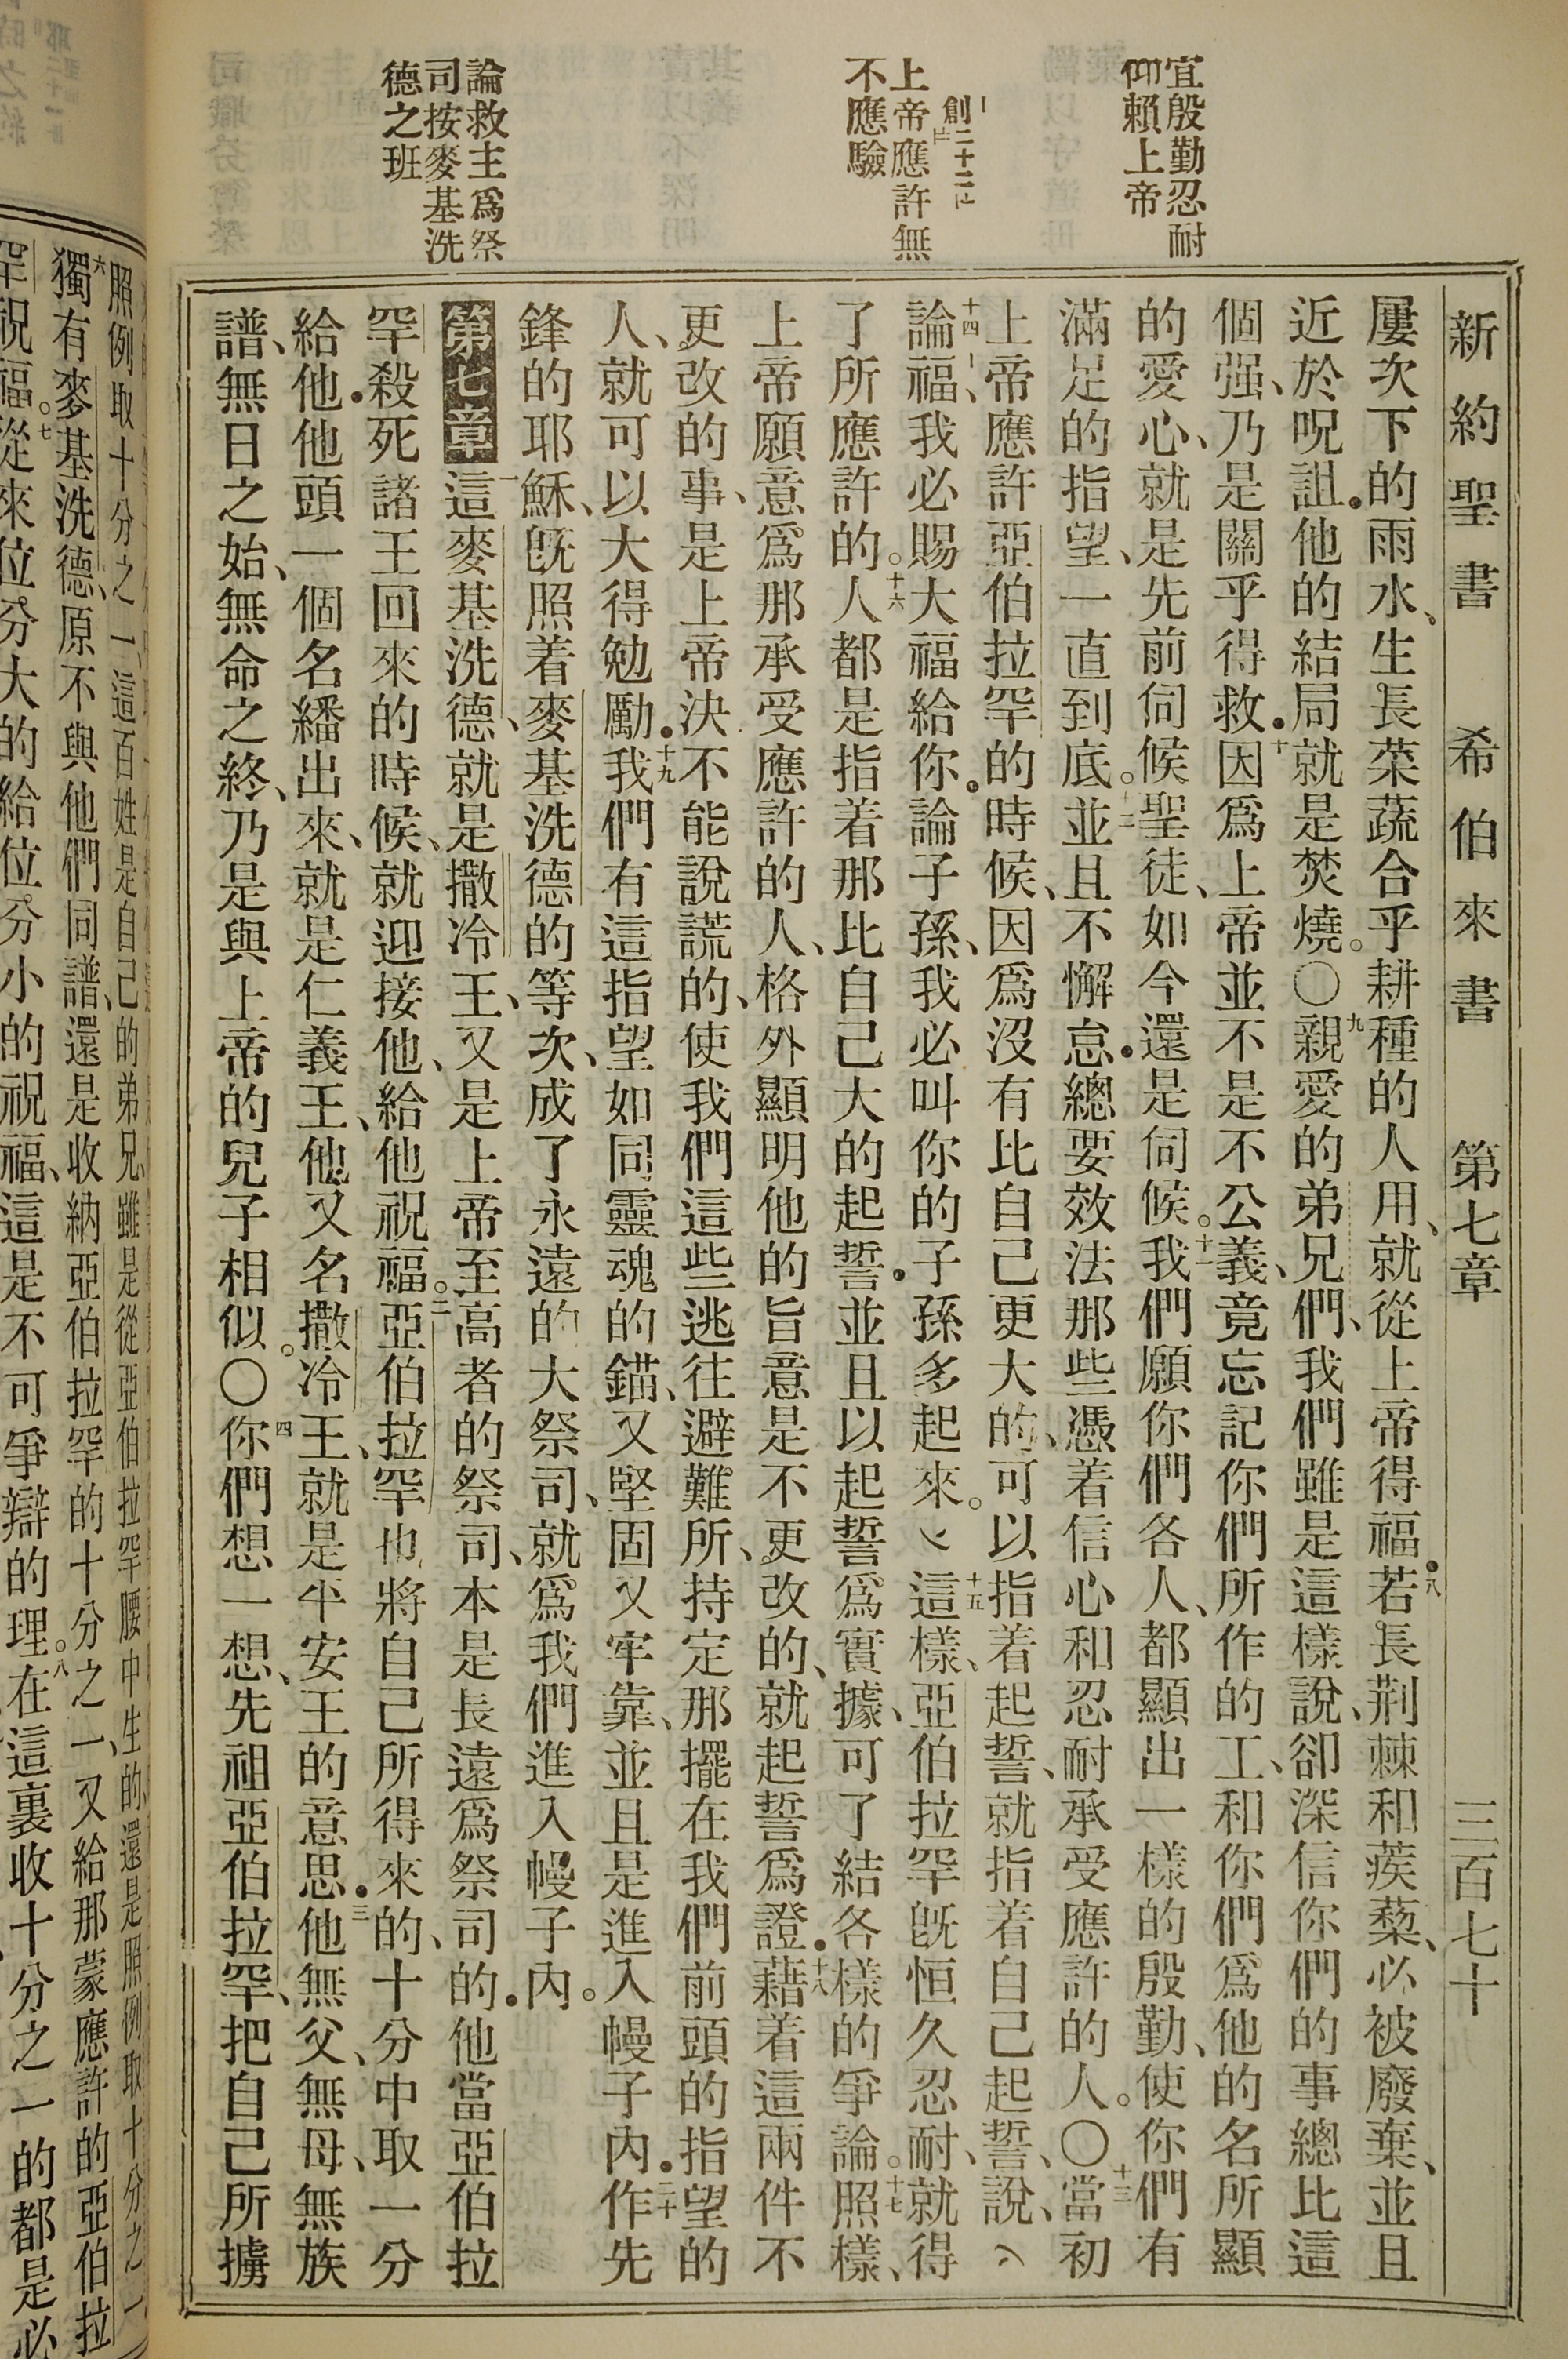 新約聖書 希伯來書 第七章 三百七十
宜殷勤忍耐
仰賴上帝
創二十二
上帝應許無
不應驗
論救主爲祭
司按麥基洗
德之班
屢次下的雨水、生長菜蔬合乎耕種的人用、就從上帝得福•八若長荆棘和蒺藜、必被廢棄、並且
近於呪詛•他的結局就是焚燒。〇九親愛的弟兄們、我們雖是這樣說、卻深信你們的事總比這
個强、乃是關乎得救•十因爲上帝並不是不公義、竟忘記你們所作的工、和你們爲他的名所顯
的愛心、就是先前伺候聖徒、如今還是伺候。十一我們願你們各人、都顯出一樣的殷勤、使你們有
滿足的指望、一直到底。十二並且不懈怠•總要效法那些憑着信心和忍耐承受應許的人。〇十三當初
上帝應許亞伯拉罕的時候、因爲沒有比自己更大的、可以指着起誓、就指着自己起誓、說、
十四論福、我必賜大福給你•論子孫、我必叫你的子孫多起來。十五這樣、亞伯拉罕旣恒久忍耐、就得
了所應許的。十六人都是指着那比自己大的起誓•並且以起誓爲實據、可了結各樣的爭論。十七照樣、
上帝願意爲那承受應許的人、格外顯明他的旨意是不更改的、就起誓爲證•十八藉着這兩件不
更改的事、是上帝決不能說謊的、使我們這些逃往避難所、持定那擺在我們前頭的指望的
人、就可以大得勉勵•十九我們有這指望如同靈魂的錨、又堅固又牢靠、並且是進入幔子內•二十作先
鋒的耶穌、旣照着麥基洗德的等次、成了永遠的大祭司、就爲我們進入幔子內。
第七章 一這麥基洗德、就是撒冷王、又是上帝至高者的祭司、本是長遠爲祭司的•他當亞伯拉
罕殺死諸王回來的時候、就迎接他、給他祝福。二亞伯拉罕也將自己所得來的、十分中取一分
給他•他頭一個名繙出來、就是仁義王、他又名撒冷王、就是平安王的意思•三他無父、無母、無族
譜、無日之始、無命之終、乃是與上帝的兒子相似。〇四你們想一想、先祖亞伯拉罕、把自己所擄
照例取十分之一、這百姓是自己的弟兄、雖是從亞伯拉罕腰中生的、還是照例取十分之一
六獨有麥基洗德、原不與他們同譜、還是收納亞伯拉罕的十分之一、又給那蒙應許的亞伯拉
罕祝福。七從來位分大的給位分小的祝福、這是不可爭辯的理。八在這裏收十分之一的都是必